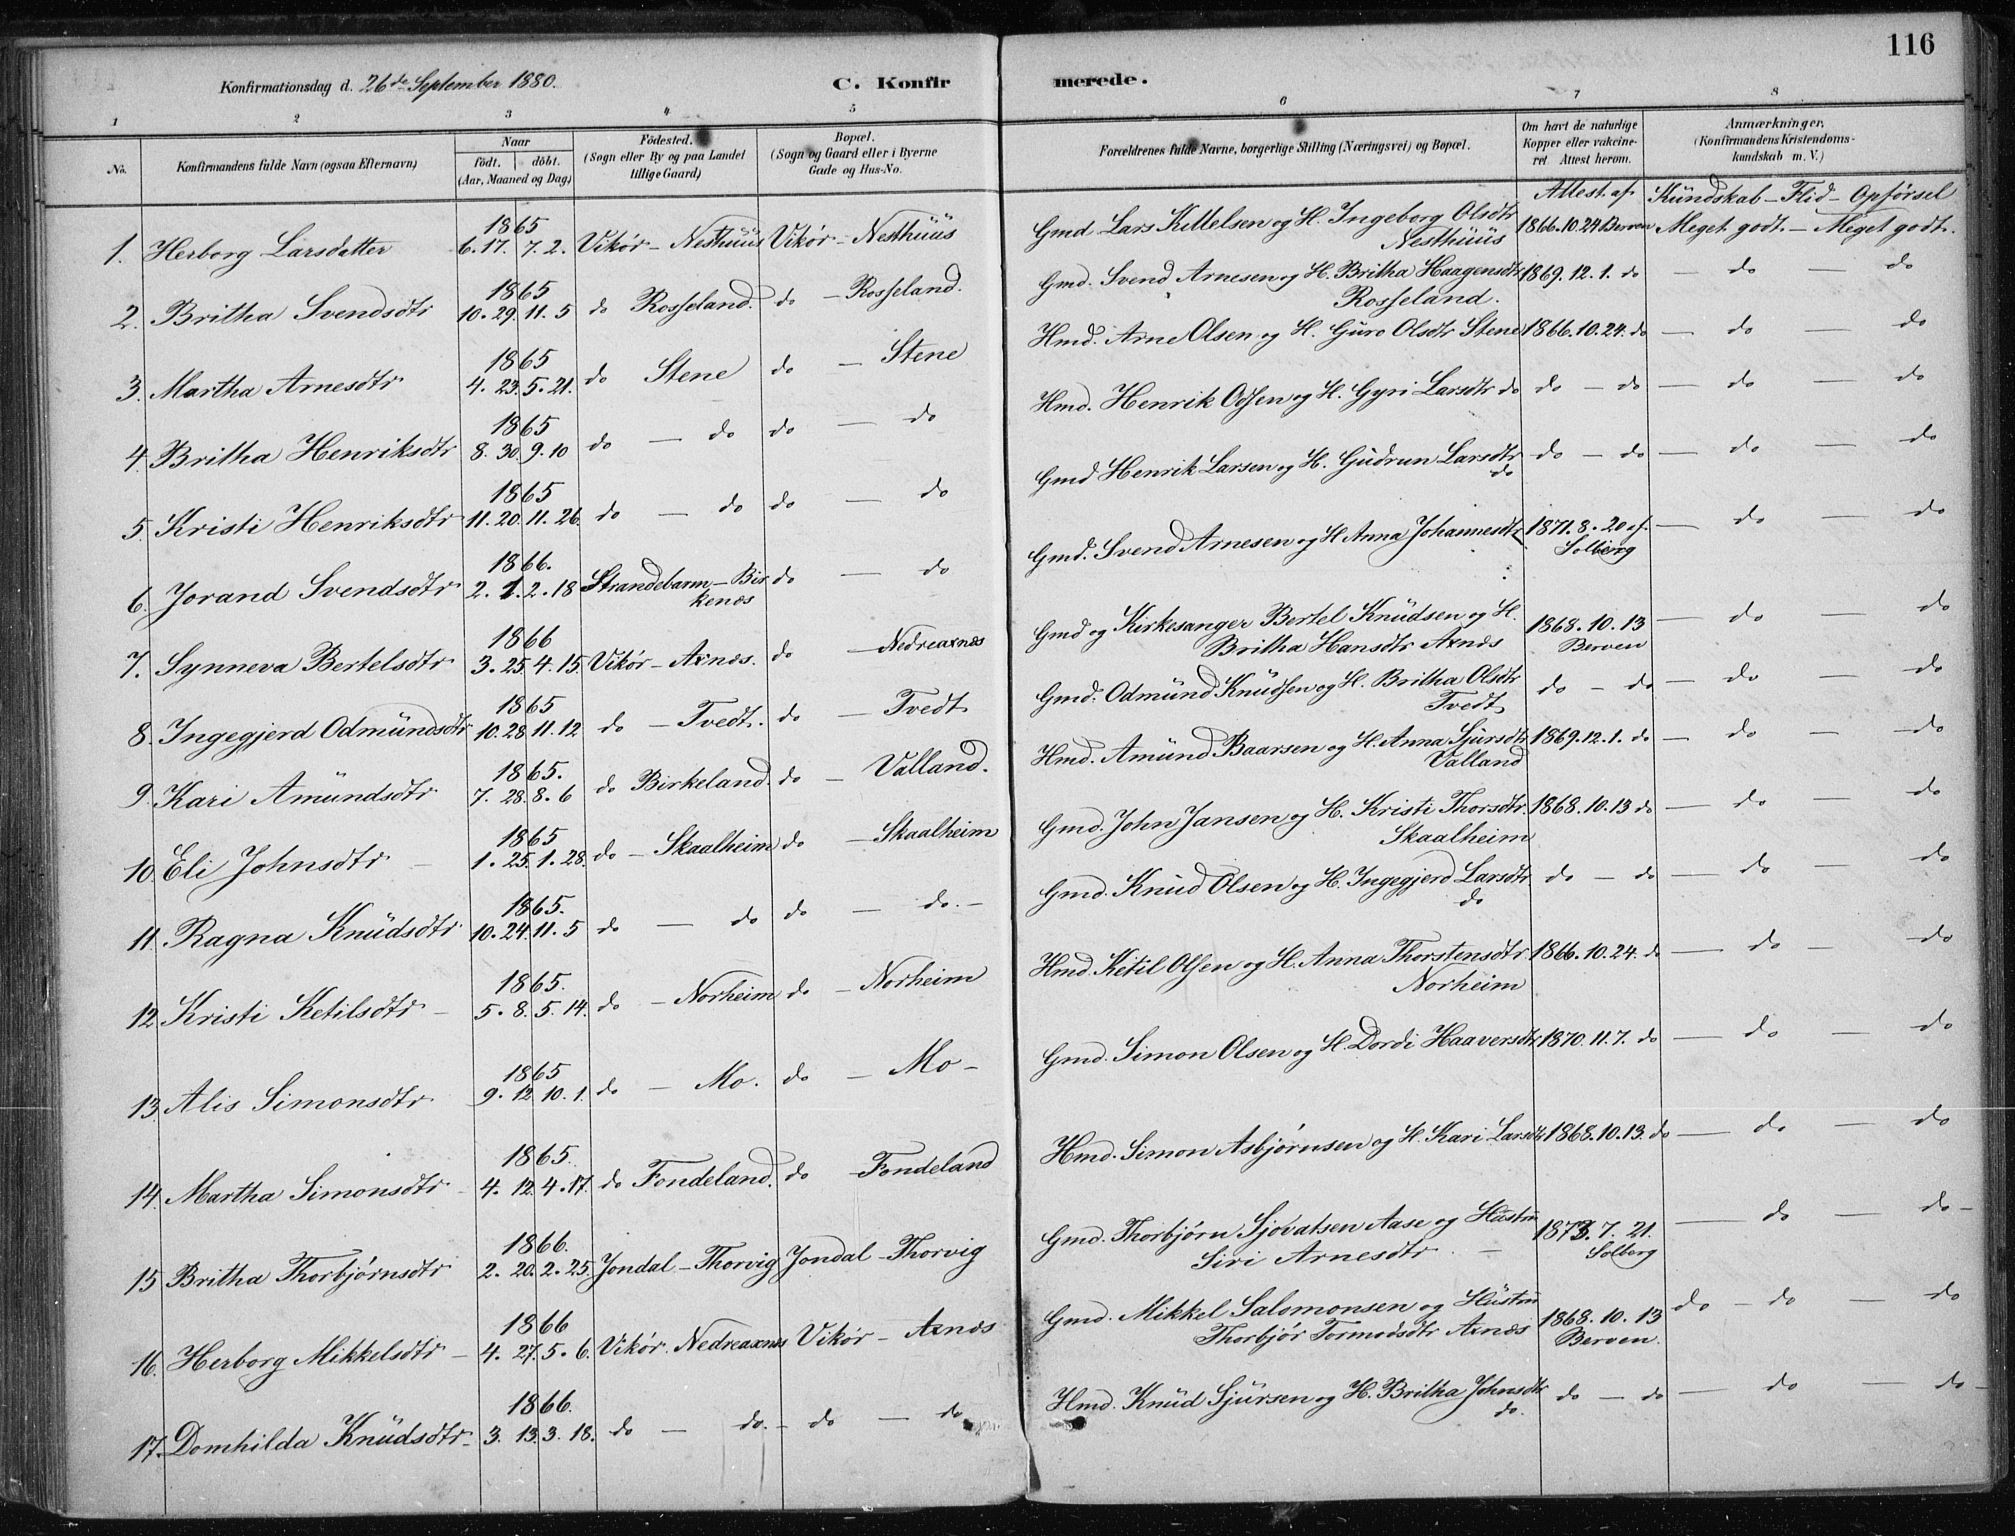 116
Konfirmationsdag d. 26de September 1880.
C. Konfir
merede.
1 2 3 4 5 6 7 8
No. Konfirmandens fulde Navn (ogsaa Efternavn)
Naar
födt. döbt.
(Aar, Maaned og Dag)
Födested.
(Sogn eller By og paa Landet
tillige Gaard)
Bopæl.
(Sogn og Gaard eller i Byerne
Gade og Hus-No.
Forældrenes fulde Navne, borgerlige Stilling (Næringsvei) og Bopæl.
Om havt de naturlige
Kopper eller vakcine-
ret. Attest herom.
Anmærkninger.
(Konfirmandens Kristendoms-
kundskab m. V.)
Attest. af. Kündskab - Flid - Opførsel
1865
1. Herborg Larsdatter 6.17. 7.2. Vikör - Nesthüüs Vikör - Nesthüüs Gmd. Lars Kittelsen og H. Ingeborg Olsdtr 1866.10.24 Berven Meget godt. - Meget godt.
Nesthüüs
1865
2. Britha Svendsdtr 10.29. 11.5 do Rosseland. do - Rosseland. Gmd. Svend Arnesen og H. Britha Haagensdtr 1869.12.1. do - do - do
Rosseland.
1865
3. Martha Arnesdtr 4.23. 5.21. do Stene do - Stene Hmd. Arne Olsen og H. Güro Olsdtr Stene 1866.10.24. do - do - do
1865
4. Britha Henriksdtr 8.30. 9.10 do - do do - do Hmd. Henrik Olsen og H. Gyri Larsdtr do do - do - do - do
1865
5. Kristi Henriksdtr 11.20. 11.26. do - do do - do Gmd Henrik Larsen og H. Güdrun Larsdtr do - do - do - do
do
1866.
6. Jorand Svendsdtr 2.1. 2.18 Strandebarm - Bir do - do Gmd. Svend Arnesen og H Anna Johannesdtr 1871.8.20 af. - do - do
kenæs Solberg
1866
7. Synneva Bertelsdtr 3.25. 4.15. Vikör - Axnæs. do - Nedreaxnæs Gmd og Kirkesanger Bertel Knüdsen og H. 1868.10.13 - do - do
Britha Hansdtr Axnæs Berven
1865
8. Ingegjerd Odmündsdtr 10.28 11.12 do - Tvedt. do - Tvedt Gmd. Odmünd Knüdsen og H. Britha Olsdtr do - do - do - do
Tvedt
1865.
9. Kari Amündsdtr 7.28. 8.6 do Birkeland. do - Valland. Hmd. Amünd Baarsen og H. Anna Sjürsdtr 1869.12.1. do - do - do
Valland
1865
10. Eli Johnsdtr - 1.25. 1.28. do - Skaalheim do - Skaalheim Gmd. John Jansen og H. Kristi Thorsdtr. 1868.10.13 do - do - do
Skaalheim
1865.
11. Ragna Knüdsdtr 10.24. 11.5 do - do do - do. - Gmd. Knüd Olsen og H. Ingegjerd Larsdtr. do - do - do - do
do
1865.
12. Kristi Ketilsdtr - 5.8. 5.14. do - Norheim do - Norheim Hmd. Ketil Olsen og H. Anna Thorstensdtr. 1866.10.24. do - do - do
Norheim
1865
13. Alis Simonsdtr 9.12. 10.1. do - Mo. do - Mo - Gmd. Simon Olsen og H. Dordi Haaversdtr. 1870.11.7. do - do - do
1865.
14. Martha Simonsdtr - 4.12. 4.17. do Fondeland. do - Fondeland Hmd. Simon Asbjørnsen og H. Kari Larsdtr 1868.10.13. do - do - do
1866.
15. Britha Thorbjørnsdtr 2.20. 2.25. Jondal - Thorvig Jondal - Thorvig Gmd. Thorbjørn Sjovatsen Aase og Hüstrü 1873.7.21. - do - do -
Siri Arnesdtr. Solberg
1866
16. Herborg Mikkelsdtr - 4.27. 5.6. Vikör. Nedreaxnæs Vikör - Axnæs Gmd. Mikkel Salomonsen og Hüstrü 1868.10.13 do - do - do
Thorbjør Tormodsdtr Axnæs Berven.
1866.
17. Domhilda Knüdsdtr. 3.13. 3.18. do - do. - do - do Hmd. Knüd Sjürsen og H. Britha Johnsdtr do - do - do - do -
do.